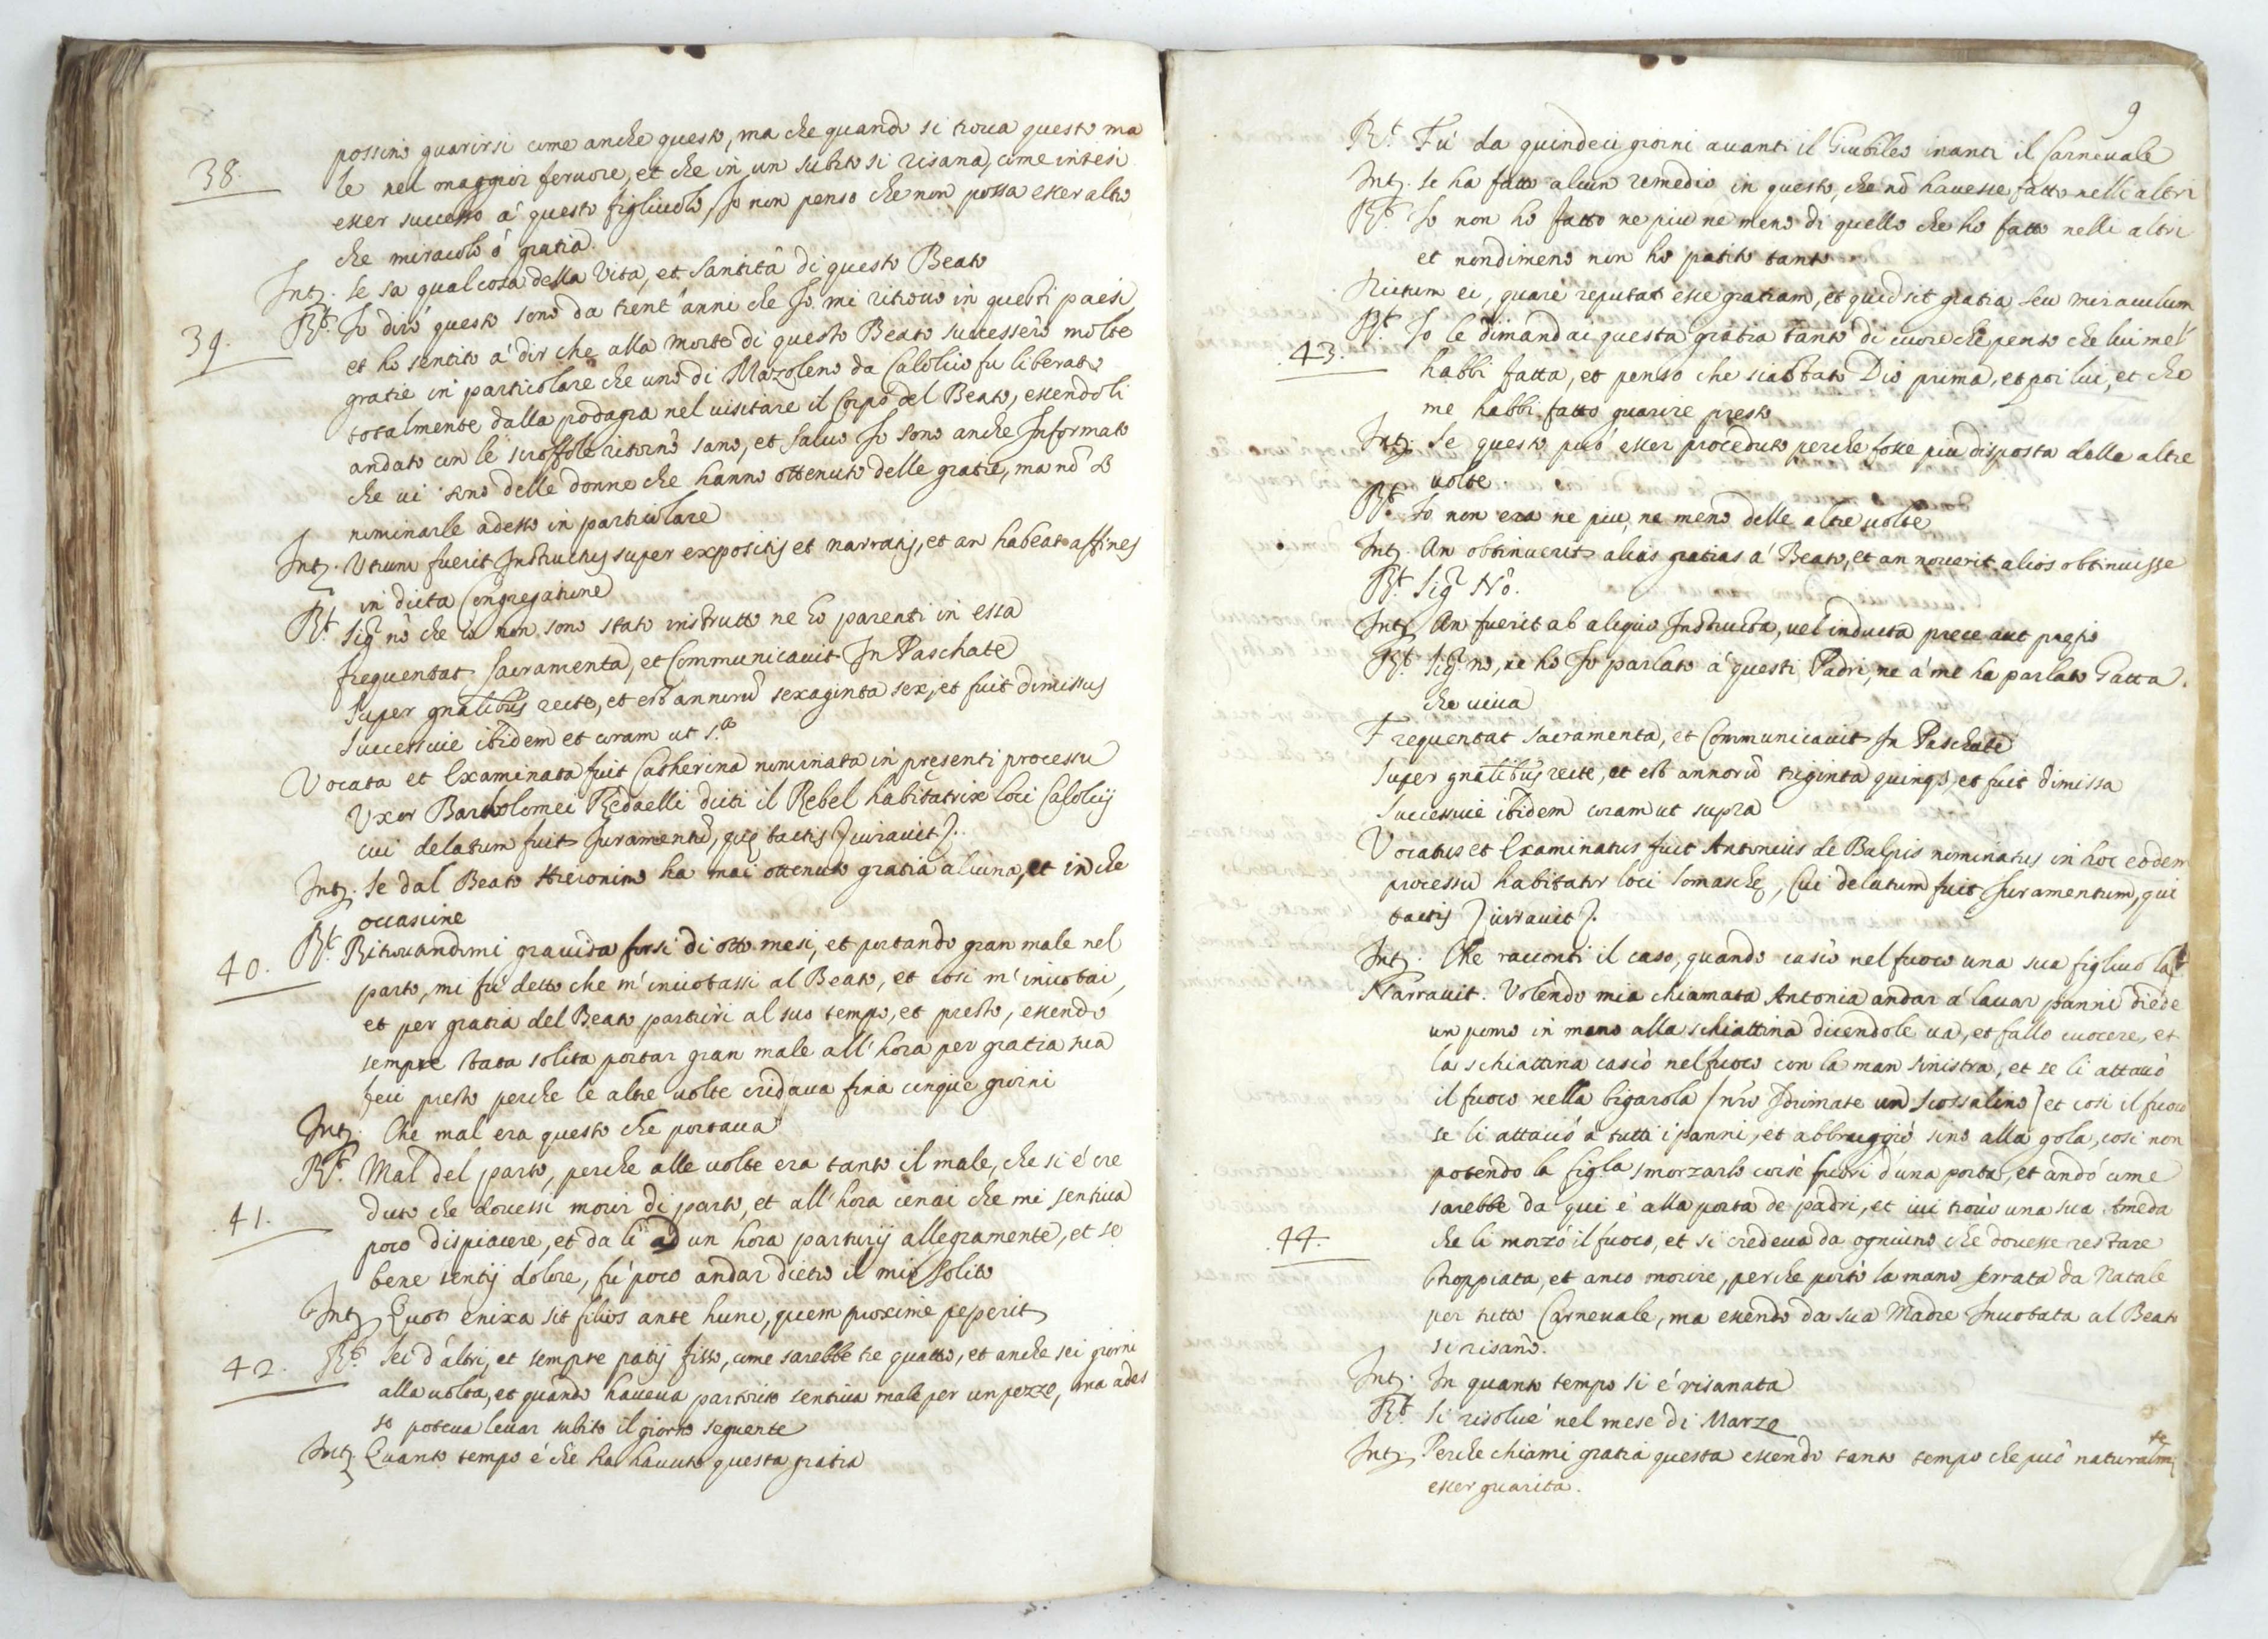 possino guarirsi come anche questo, ma che quando si troua questo ma
38.
le nel maggior feruore, et che in un subito si risana, come intesi
esser successo à questo figliuolo, Io non penso che non possa esser altro
che miracolo ò gratia.
Int. Se sa qual cosa della Vita, et Santità di questo Beato
39.
Rt. Io dirò questo sono da trent'anni che Io mi ritrouo in questi paesi
et ho sentito à dir che alla morte di questo Beato successero molte
gratie in particolare che uno di Mazoleno da Calolcio fu liberato
totalmente dalla podagra nel uisitare il Corpo del Beato, essendoli
andato con le scroffole ritornò sano, et saluo Io sono anche Informato
che ui sono delle donne che hanno ottenuto delle gratie, ma nō so
nominarle adesso in particolare
Int. Vtrum fuerit Instructus super expositis et narratis, et an habeat affines
in dicta Congregatione
Rt. Sigr nò che io non sono stato instrutto ne ho parenti in essa
frequentat sacramenta, et Communicauit In Paschate
Super gnalibus recte, et est annorū sexaginta sex, et fuit dimissus
Successiue ibidem et coram ut s.a
Vocata et Examinata fuit Catherina nominata in presenti processu
Vxor Bartholomei Redaelli dicti il Rebel habitatrix loci Calolcij
cui delatum fuit Iuramentū, que tactis Iurauit.
Int. Se dal Beato Hieronimo ha mai ottenuto gratia alcuna, et in che
occasione
40.
Rt. Ritrouandomi grauida forsi di otto mesi, et portando gran male nel
parto, mi fu detto che m'inuotassi al Beato, et cosi m'inuotai,
et per gratia del Beato parturì al suo tempo, et presto, essendo
sempre stata solita portar gran male all'hora per gratia sua
feci presto perche le altre uolte cridaua fina cinque giorni
Int. Che mal era questo che portaua
Rt. Mal del parto, perche alle uolte era tanto il male, che si è cre
41.
duto che douessi morir di parto, et all'hora cenai che mi sentiua
poco dispiacere, et da lì ad un hora parturij allegramente, et se
bene sentij dolore, fu poco andar dietro il mio solito
Int. Quot enixa sit filios ante hunc, quem proxime peperit
42.
Rt. Sei d'altri, et sempre patij fisso, come sarebbe tre quatto, et anche sei giorni
alla uolta, et quando haueua partorito sentiua male per un pezzo, ma ades
so poteua leuar subito il giorno seguente
Int. Quanto tempo è che ha hauuto questa gratia
9
Rt. Fù da quindeci giorni auanti il Giubileo inanti il Carneuale
Int. Se ha fatto alcun remedio in questo, che nō hauesse fatto nelli altri
Rt. Io non ho fatto ne piu ne meno di quello che ho fatto nelli altri
et nondimeno non ho patito tanto
Dictum ei, quare reputat esse gratiam, et quid sit gratia seu miraculum
43.
Rt. Io le dimandai questa gratia tanto di cuore che penso che lui mel'
habbi fatta, et penso che sia stato Dio prima, et poi lui, et che
me habbi fatto guarire presto
Int. Se questo può esser proceduto perche fosse piu disposta delle altre
uolte.
Rt. Io non era ne piu, ne meno delle altre uolte
Int. An obtinuerit alias gratias à Beato, et an nouerit alios obtinuisse
Rt. Sigr Nò.
Int. An fuerit ab aliquo Instructa, uel inducta prece aut pretio
Rt. Sigr nò, ne ho Io parlato à questi Padri, ne à me ha parlato Gatta
che uiua
Frequentat sacramenta, et Communicauit In Paschate
Super gnalibus recte, et est annorū triginta quinq3, et fuit dimissa
Successiue ibidem coram ut supra
Vocatus et Examinatus fuit Antonius de Balpis nominatus in hoc eodem
processu habitator loci Somasche, Cui delatum fuit Iuramentum, qui
tactis Iurrauit.
Int. Che racconti il caso, quando cascò nel fuoco una sua figliuola
Narrauit. Volendo mia chiamata Antonia andar à lauar panni diede
un pomo in mano alla schiattina dicendole ua, et fallo cuocere, et
la schiattina cascò nel fuoco con la man sinistra, et se li attacò
il fuoco nella bigarola / nro Idiomate un scossalino / et cosi il fuoco
se li attacò à tutti i panni, et abbruggiò sino alla gola, cosi non
potendo la figla smorzarlo corse fuori d'una porta, et andò come
sarebbe da qui è alla porta de padri, et iui trouò una sua Ameda
44.
che li morzò il fuoco, et si credeua da ogniuno che douesse restare
stroppiata, et anco morire, perche portò la mano serrata da Natale
per tutto Carneuale, ma essendo da sua Madre Inuotata al Beato
si risanò.
Int. In quanto tempo si è risanata
Rt. Si risoluè nel mese di Marzo
Int. Perche chiami gratia questa essendo tanto tempo che può naturalmte
esser guarita.